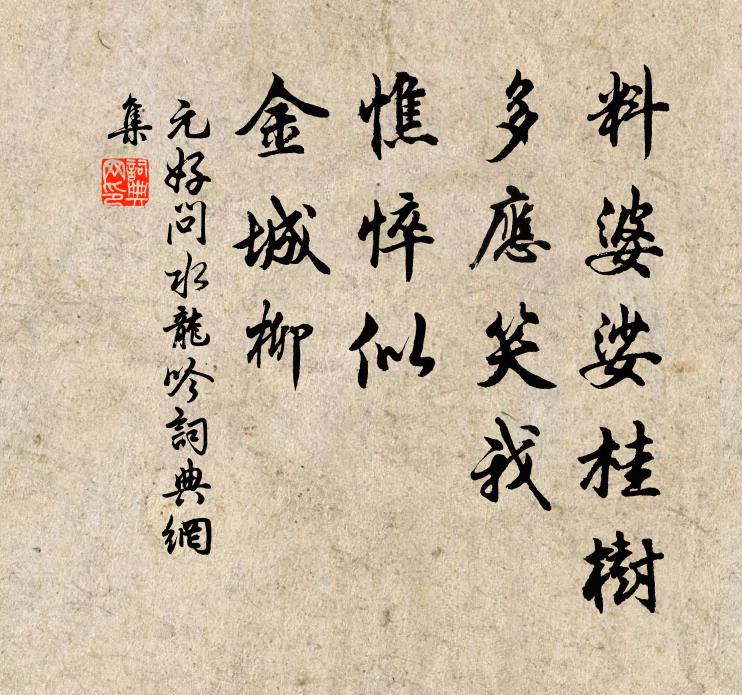 料婆娑桂樹
多應笑我
憔悴似
金城柳
元好問水龍吟詞典網
集
詞典
网印